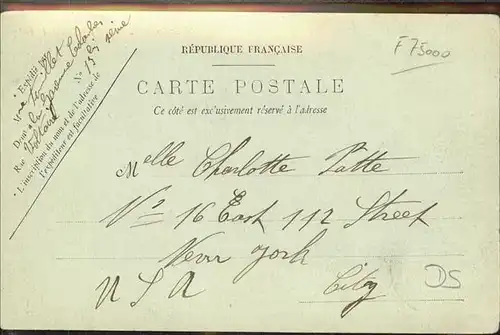 F 75000
RÉPUBLIQUE FRANÇAISE
CARTE POSTALE
Ce côté est exclusivement réservé à l'adresse
Expédié par
Dem.
Rue
N° 13
L'inscription du nom et de l'adresse de
l'expéditeur est facultative
Melle Charlotte Patte
No 16 East 112 Street
New York
U S A City
DS